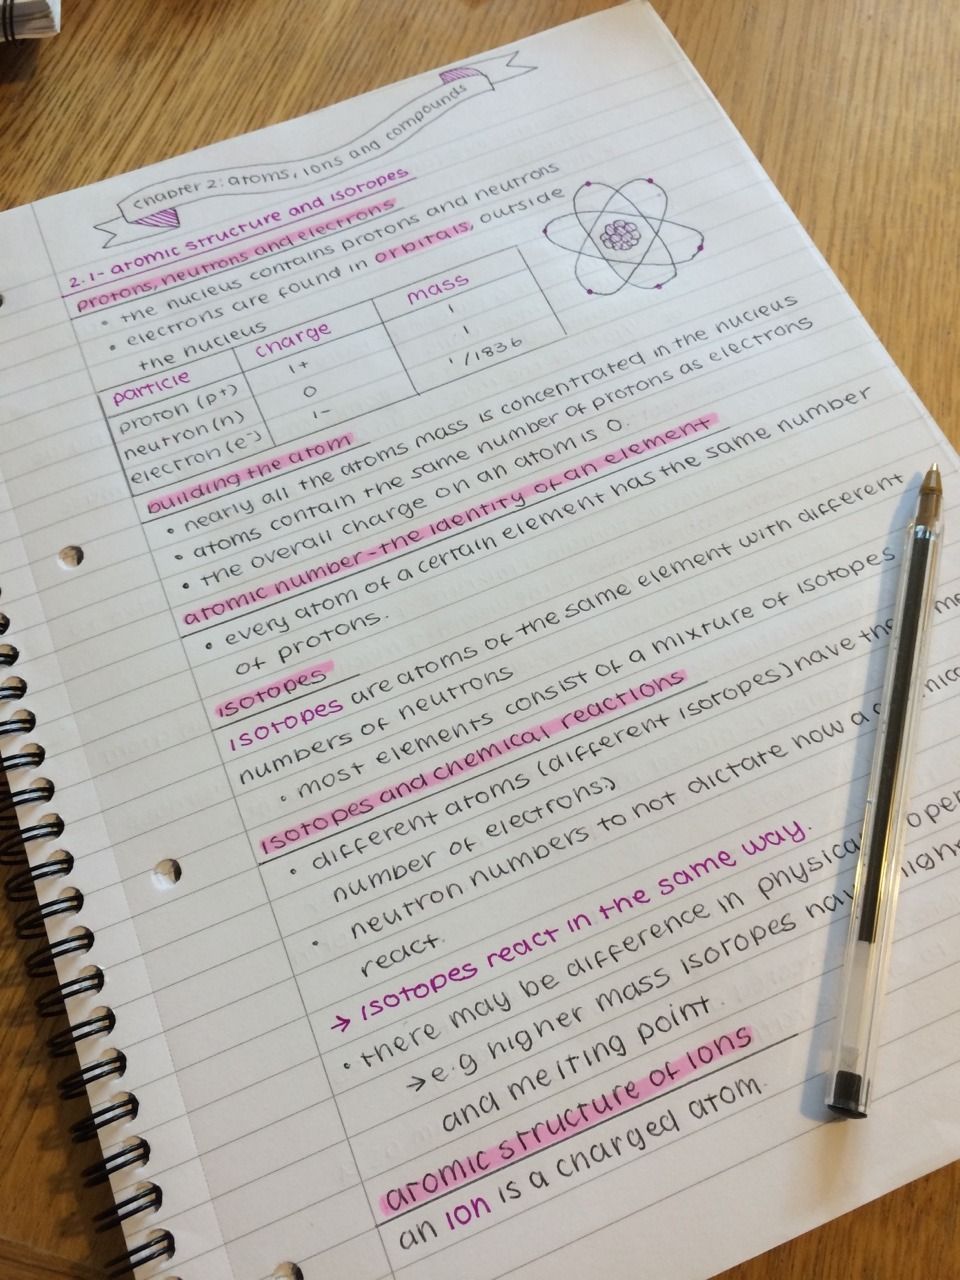 chapter 2: atoms, ions and compounds
2.1- atomic structure and isotopes
protons, neutrons and electrons
• the nucleus contains protons and neutrons
• electrons are found in orbitals, outside
the nucleus
particle charge mass
proton (p+) 1+ 1
neutron (n) 0 1
electron (e-) 1- 1/1836
building the atom
• nearly all the atoms mass is concentrated in the nucleus
• atoms contain the same number of protons as electrons
• the overall charge on an atom is 0.
atomic number - the identity of an element
• every atom of a certain element has the same number
of protons.
isotopes
isotopes are atoms of the same element with different
numbers of neutrons
• most elements consist of a mixture of isotopes
isotopes and chemical reactions
• different atoms (different isotopes) have the
number of electrons.)
• neutron numbers to not dictate how a
react.
→ isotopes react in the same way.
• there may be difference in physical
→ e.g higher mass isotopes have
and melting point.
atomic structure of ions
an ion is a charged atom.